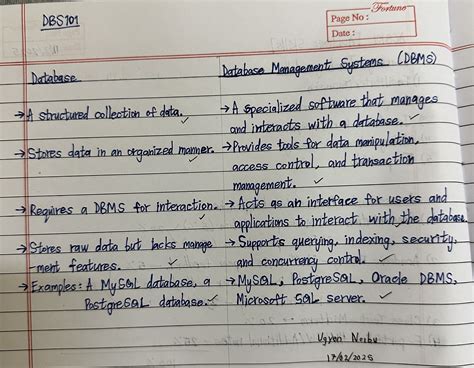 DBS101
Fortune
Page No :
Date :
Database
Database Management Systems (DBMS)
→ A structured collection of data.
→ A specialized software that manages
and interacts with a database.
→ Stores data in an organized manner.
→ Provides tools for data manipulation,
access control, and transaction
management.
→ Requires a DBMS for interaction.
→ Acts as an interface for users and
applications to interact with the database
→ Stores raw data but lacks manage
-ment features.
→ Supports querying, indexing, security,
and concurrency control.
→ Examples: A MySQL database, a
PostgreSQL database.
→ MySQL, PostgreSQL, Oracle DBMS,
Microsoft SQL server.
17/02/2025